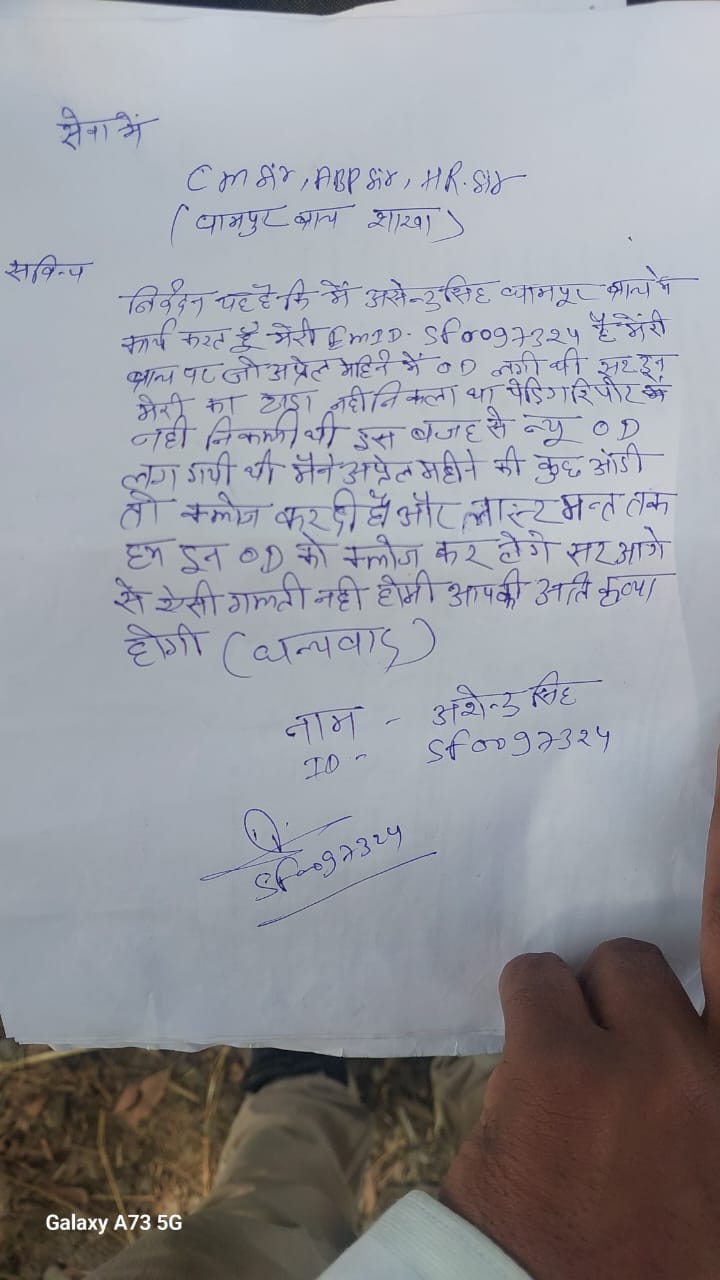 सेवा में
CM सर, ABP सर, HR. सर
(धामपुर ब्रान्च शाखा)
सविनय
निवेदन यह है कि में असेन्द्र सिंह धामपूर ब्रान्च में
कार्य करत हूँ मेरी EmID. SF0097324 है मेरी
ब्रान्च पर जो अप्रेल महिने में OD लगी थी सर इन
मेरी का डाटा नही निकला था पेंडिंग रिपोट
नही निकली थी इस बजह से न्यू OD
लग गयी थी मैने अप्रेल महीने की कुछ ओडी
तो क्लोज कर दी है और लास्ट मन्त तक
हम इन OD को क्लोज कर लेगे सर आगे
से ऐसी गलती नही होगी आपकी अति कृप्या
होगी (धन्यवाद)
नाम - अशेन्द्र सिंह
ID - SF0097324
SF0097324
Galaxy A73 5G